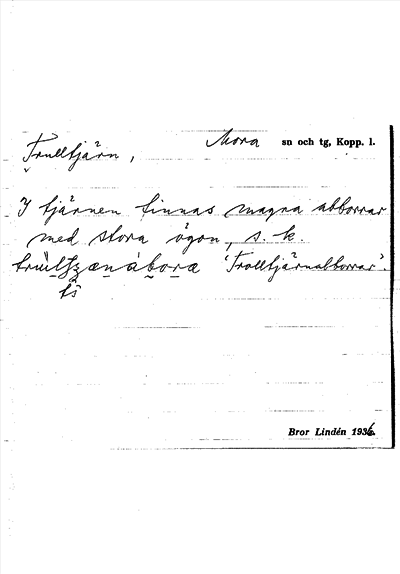 Trulltjärn,
Mora sn och tg, Kopp. l.
I tjärnen finnas magra abborrar
med stora ögon, s. k.
'Trolltjärnabborrar'.
Bror Lindén 1936.